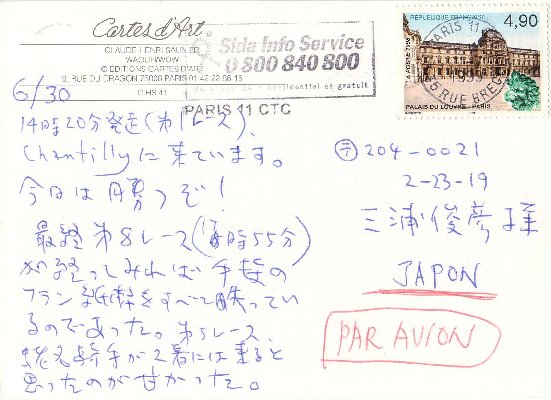 Cartes d'Art
CLAUDE-HENRI SAUNIER
WAOUHWOW
© EDITIONS CARTES D'ART
9, RUE DU DRAGON 75006 PARIS 01 42 22 86 15
CHS 41
Sida Info Service
0 800 840 800
confidentiel et gratuit
PARIS 11 CTC
RÉPUBLIQUE FRANÇAISE
4,90
LA POSTE 1998
PARIS 11
RUE BREG
PALAIS DU LOUVRE - PARIS
6/30
14時20分発走(第1レース)、
Chantillyに来ています。
今日は勝つぞ!
最終第8レース(18時55分)
が終ってみれば手持の
フラン紙幣をすべて失ってい
るのであった。第5レース、
蛯名騎手が2着には来ると
思ったのが甘かった。
〒204-0021
2-23-19
三浦俊彦様
JAPON
PAR AVION